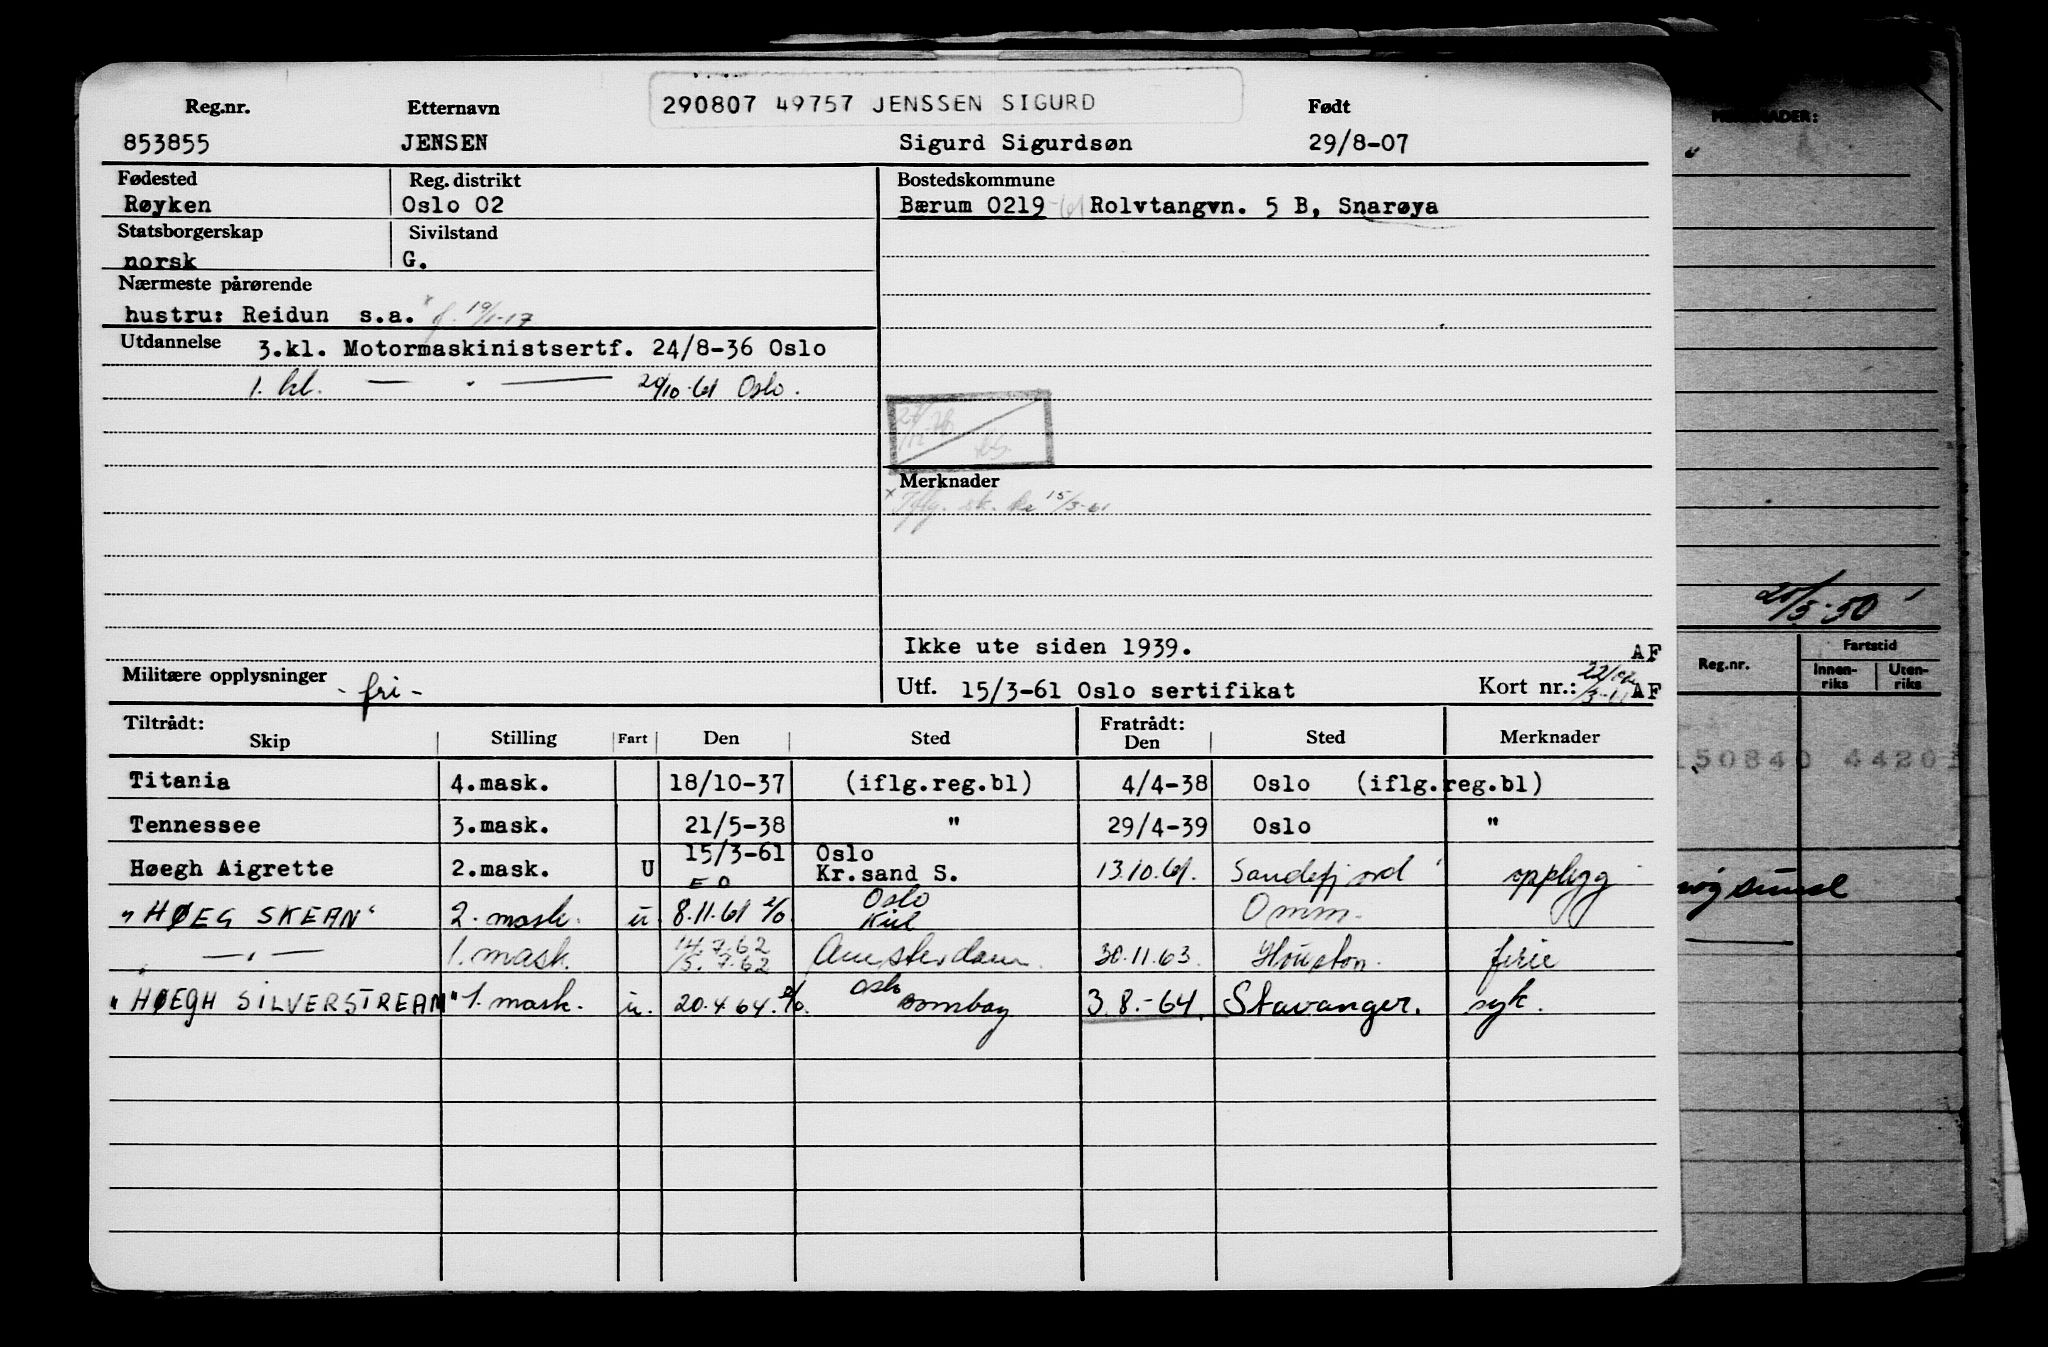 290807 49757 JENSSEN SIGURD
Reg.nr. Etternavn Født
853855 JENSEN Sigurd Sigurdsøn 29/8-07
Fødested Reg. distrikt Bostedskommune
Røyken Oslo 02 Bærum 0219 -61 Rolvtangvn. 5 B, Snarøya
Statsborgerskap Sivilstand
norsk G.
Nærmeste pårørende
hustru: Reidun s.a. x f. 19/1-17
Utdannelse 3.kl. Motormaskinistsertf. 24/8-36 Oslo
1. kl. — " — 20/10-61 Oslo.
Merknader
x Iflg. sk. kr 15/3-61
Ikke ute siden 1939. AF
Militære opplysninger - fri - Utf. 15/3-61 Oslo sertifikat Kort nr.: AF
Tiltrådt: Fratrådt:
Skip Stilling Fart Den Sted Den Sted Merknader
Titania 4.mask. 18/10-37 (iflg.reg.bl) 4/4-38 Oslo (iflg.reg.bl)
Tennessee 3.mask. 21/5-38 " 29/4-39 Oslo "
15/3-61 Oslo
Høegh Aigrette 2.mask. U E O Kr.sand S. 13.10.61. Sandefjord opplegg
Oslo
"HØEG SKEAN" 2. mask. u. 8.11.61 Kiel Omm.
" — " — 1. mask. 14.7.62 15.7.62 Amsterdam. 30.11.63. Houston. ferie
Oslo
"HØEGH SILVERSTREAM" 1. mask. u. 20.4.64. Bombay 3.8.-64. Stavanger. syk.
MERKNADER:
"
Reg.nr. Fartstid
Innenriks Utenriks
150840 4420